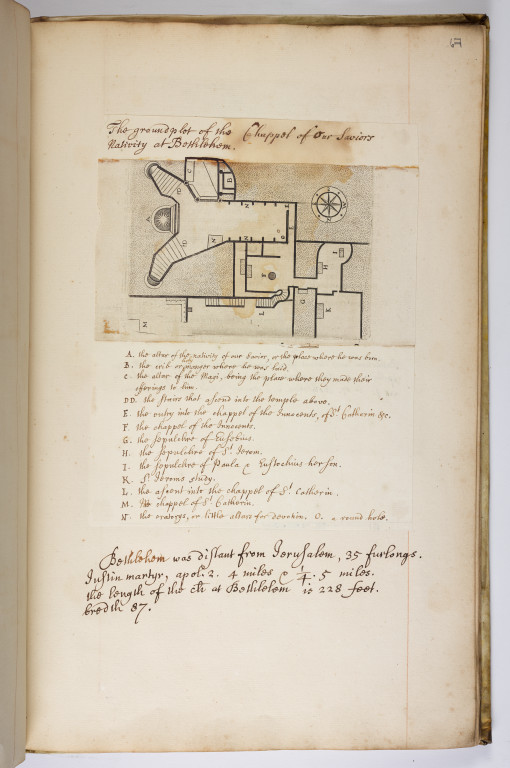 67
The groundplot of the Chappel of Our Saviors
Nativity at Bethlehem.
A. the altar of the nativity of our Savior, or the place where he was born.
B. the crib or manger where he was laid.
C. the altar of the Magi, being the place where they made their
offerings to him.
DD. the stairs that ascend into the temple above.
E. the entry into the chappel of the Innocents, of St Catherin &c.
F. the chappel of the Innocents.
G. the sepulchre of Eusebius.
H. the sepulchre of St. Jerom.
I. the sepulchre of Paula & Eustochius her son.
K. St. Jeroms study.
L. the ascent into the chappel of St Catherin.
M. the chappel of St Catherin.
N. the oratorys, or little altars for devotion. O. a round hole.
Bethlehem was distant from Jerusalem, 35 furlongs.
Justin martyr, apol. 2. 4 miles & 1/4. 5 miles.
the length of the ch at Bethlehem is 228 feet.
bredth 87.